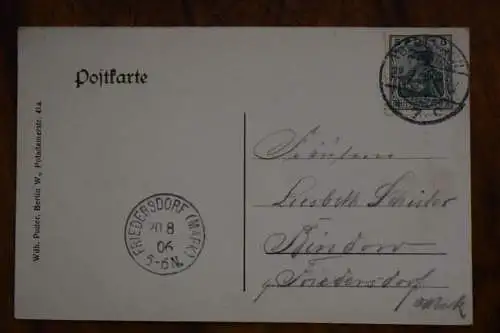 Postkarte
Wilh. Puder, Berlin W., Potsdamerstr. 41a.
FRIEDERSDORF (MARK)
20 8
06
5-6N.
Fräulein
Liesbeth Schüler
Bindow
Friedersdorf
Mark